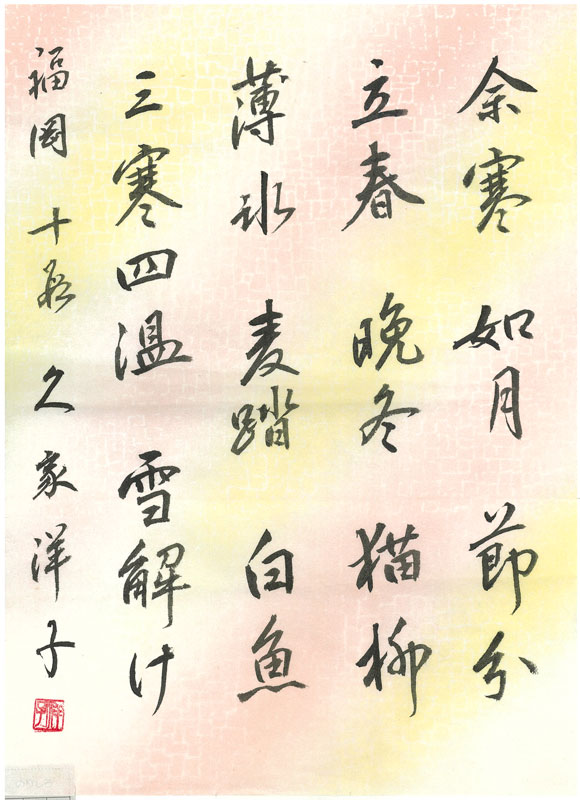 余寒 如月 節分
立春 晩冬 猫柳
薄氷 麦踏 白魚
三寒四温 雪解け
福岡 十段 久家洋子